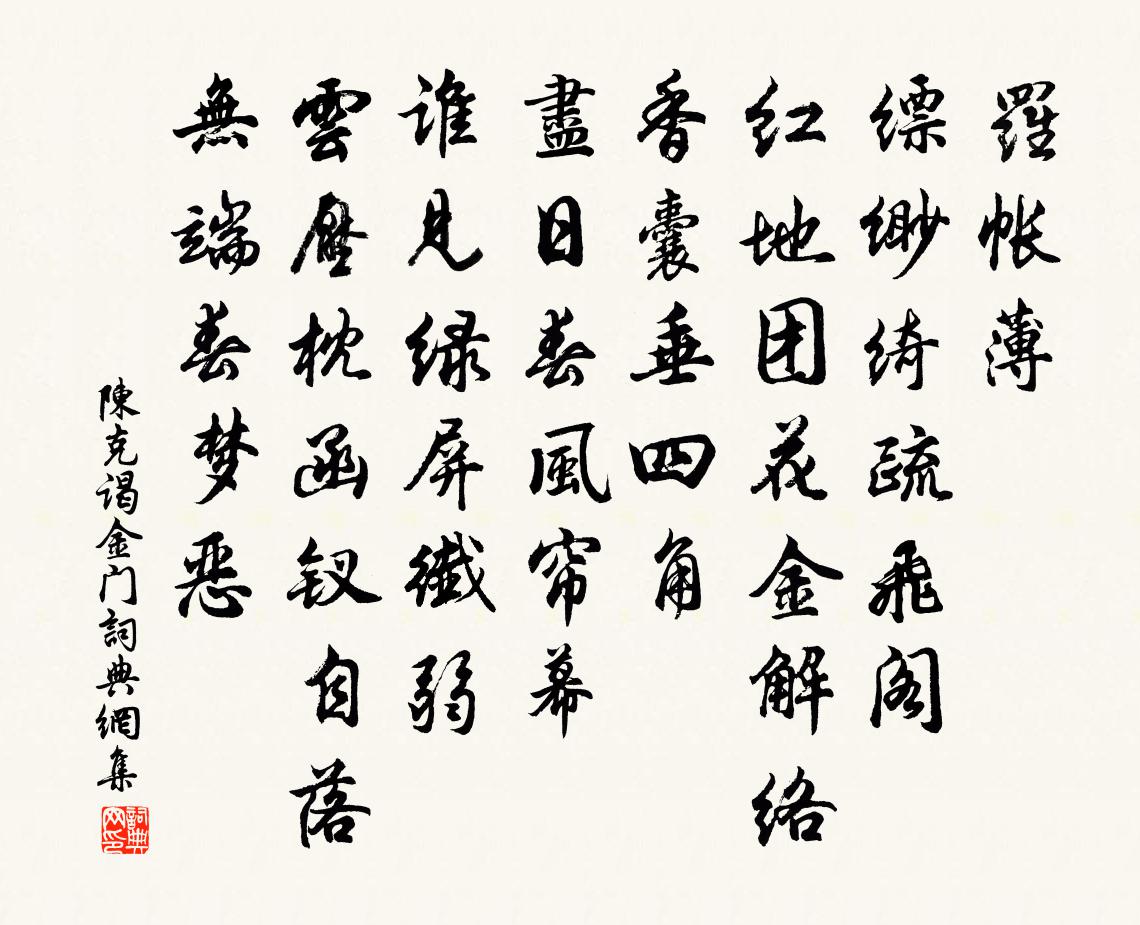 羅帐薄
缥缈绮疏飛阁
红地团花金解络
香囊垂四角
盡日春風帘幕
谁見绿屏纖弱
雲壓枕函钗自落
無端春梦恶
陳克谒金门詞典網集
詞典网印